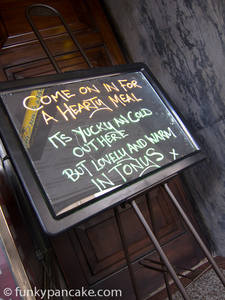 COME ON IN FOR
A HEARTY MEAL
ITS YUCKY AN COLD
OUT HERE
BUT LOVELY AND WARM
IN TONUS X
© funkypancake.com